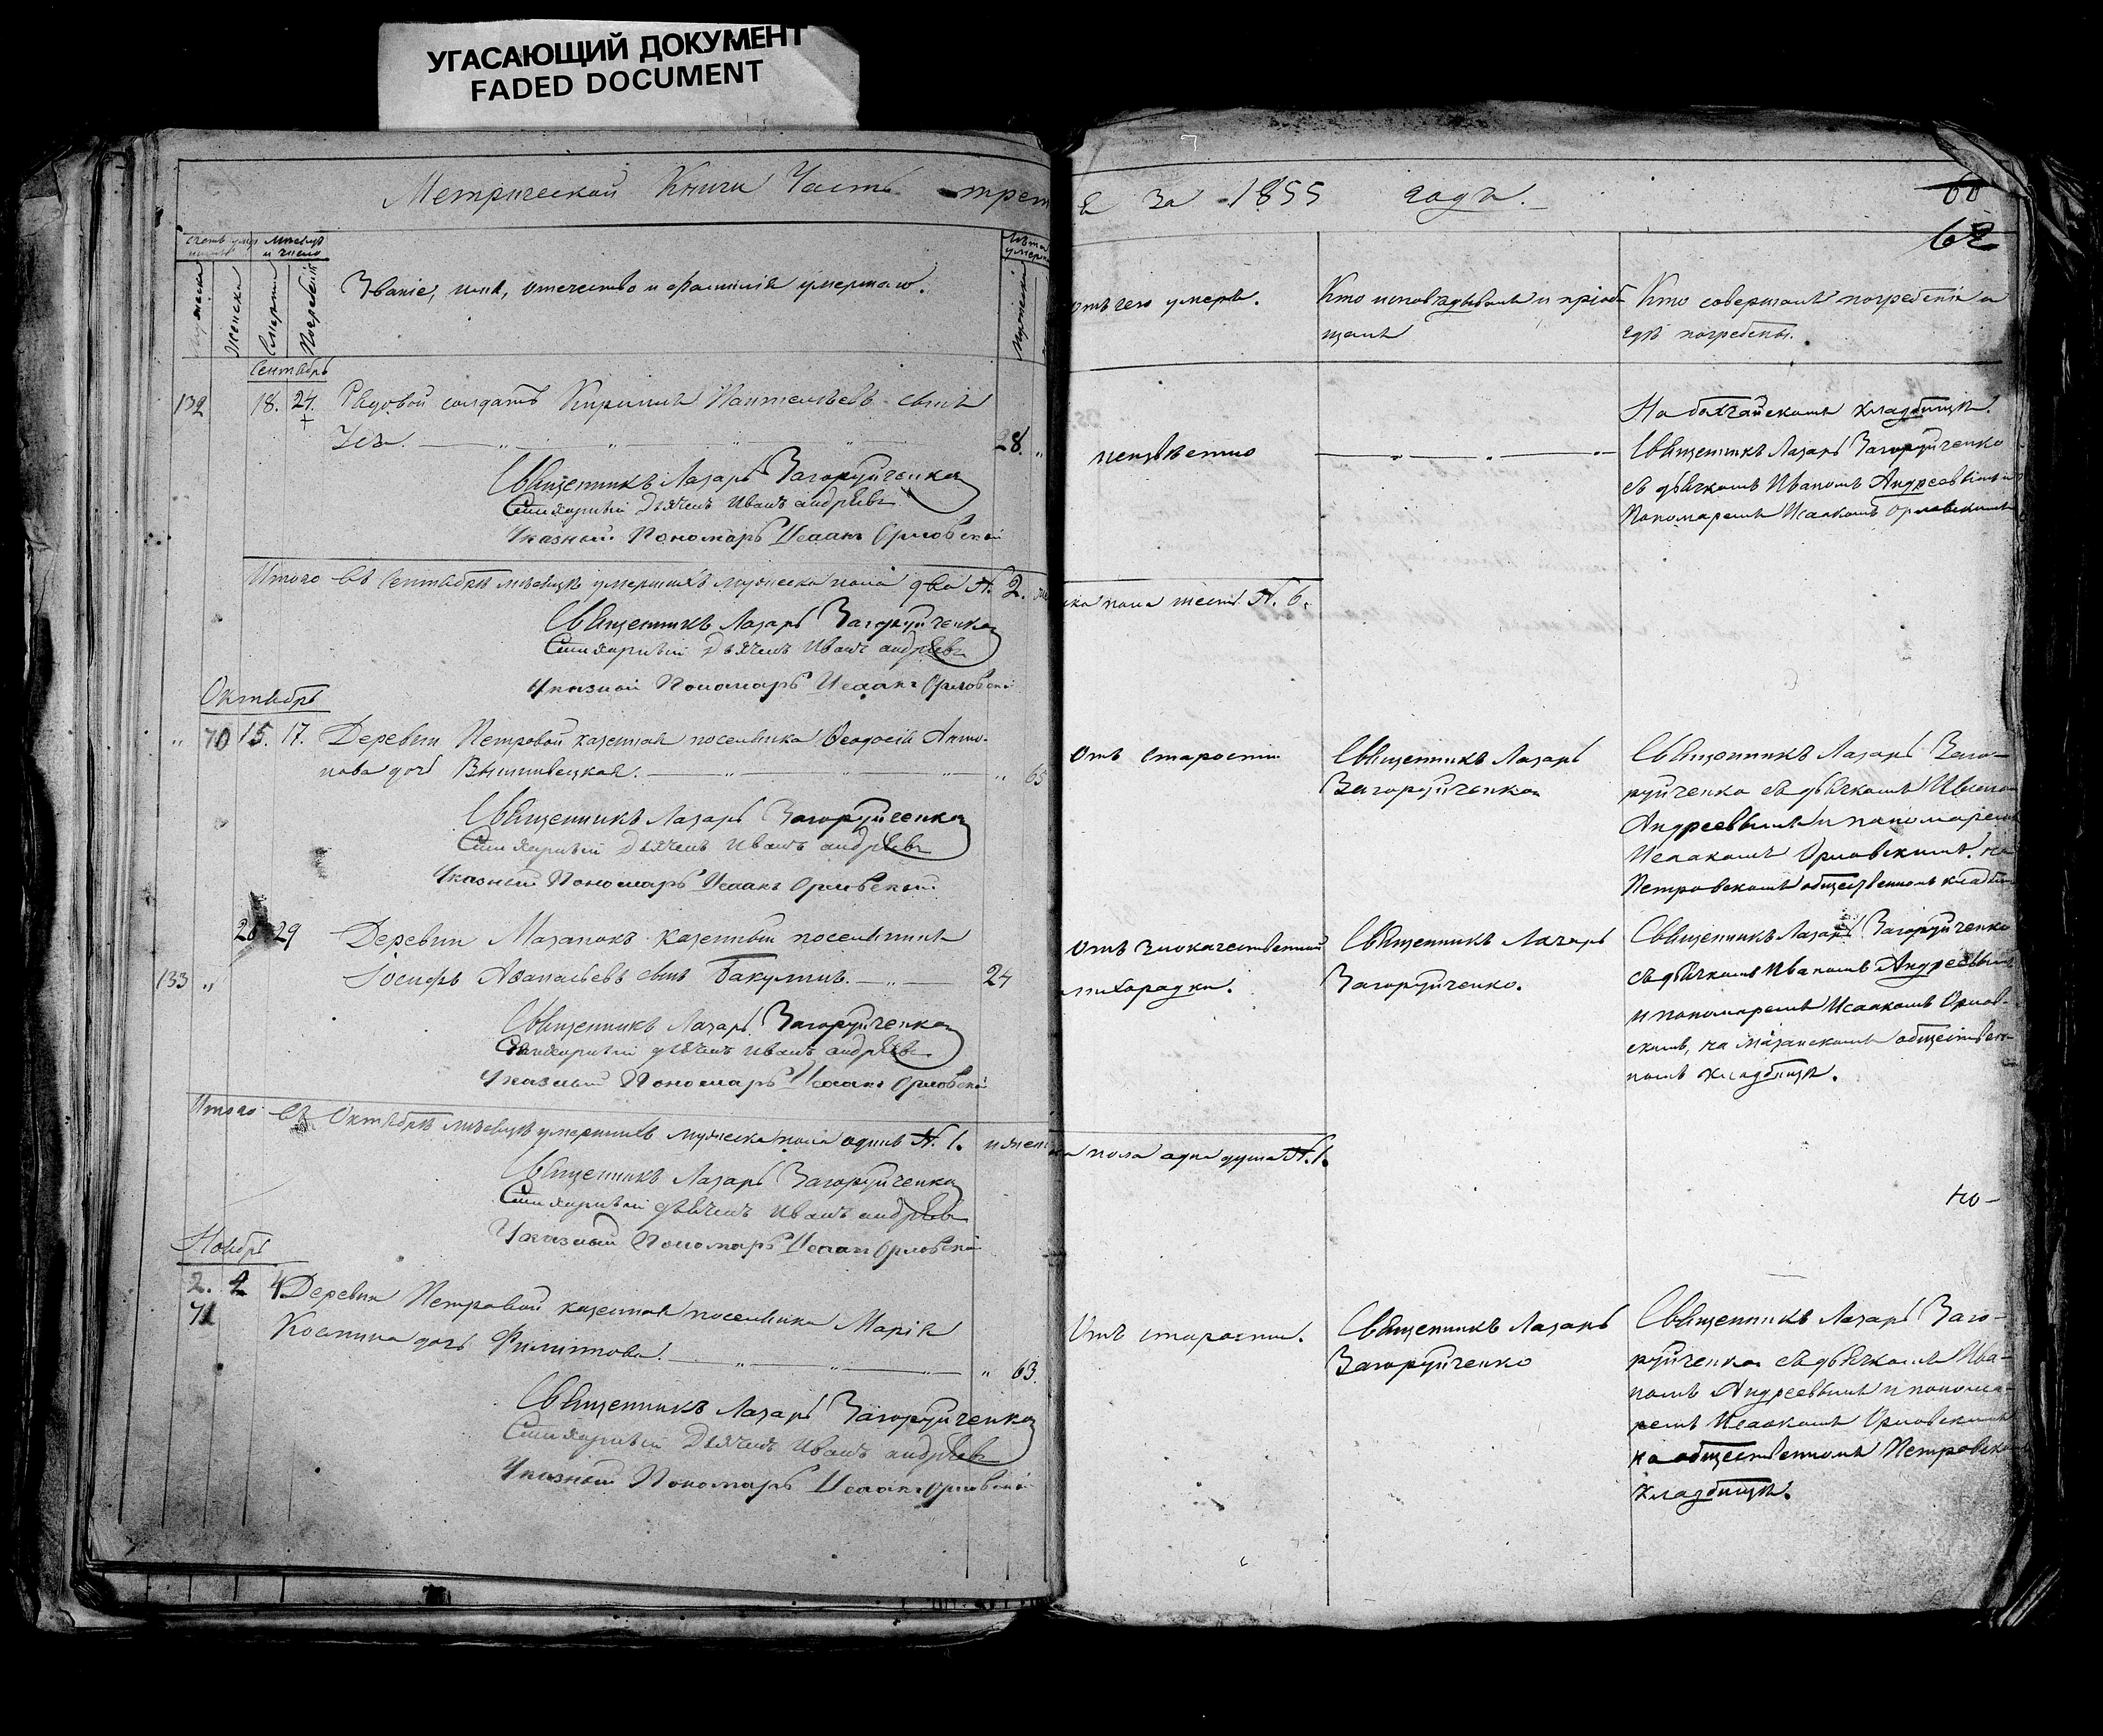 УГАСАЮЩИЙ ДОКУМЕНТ
FADED DOCUMENT
Метрической Книги Часть трет
За 1855 года.
60
62
мѣсяцъ
и число
Мужеска
Женска
Смерти
Погребенія
Званіе, имя, отечество и фамилія умершаго.
отъ чего умеръ.
Кто исповѣдывалъ и пріоб
щалъ
Кто совершалъ погребеніе и
гдѣ погребены.
Сентябрь
132 18. 24. Рядовой солдатъ Кириллъ Пантелѣевъ сынъ
28.
неизвѣстно
На бахчайскомъ кладбищѣ.
Священникъ Лазарь Загоруйченко
съ дьячкомъ Иваномъ Андреевымъ и
Пономаремъ Исаакомъ Орловскимъ
Священникъ Лазарь Загоруйченко
Стихарный Дьячекъ Иванъ андрѣевъ
Указный Пономарь Исаакъ Орловскій
Итого въ Сентябрѣ мѣсяцѣ умершихъ мужеска пола два N. 2.
ска пола шесть N. 6.
Священникъ Лазарь Загоруйченко
Стихарный Дьячекъ Иванъ андрѣевъ
Указный Пономарь Исаакъ Орловскій
Октябрь
" 70 15. 17. Деревни Петровой казенная поселянка Ѳеодосія Анто-
нова дочь Вышнивецкая. " 65
Отъ старости
Священникъ Лазарь
Загоруйченко
Священникъ Лазарь Заго-
руйченко съ дьячкомъ Ивано
Андреевымъ и пономаремъ
Исаакомъ Орловскимъ, на
Петровскомъ общественномъ кладби
Священникъ Лазарь Загоруйченко
Стихарный Дьячекъ Иванъ андрѣевъ
Указный Пономарь Исаакъ Орловскій
29 Деревни Мазанокъ казенный поселянинъ
133 " Іосифъ Аѳанасьевъ сынъ Бакулинъ. 24
Отъ злокачественной
лихорадки.
Священникъ Лазарь
Загоруйченко.
Священникъ Лазарь Загоруйченко
съ дьячкомъ Иваномъ Андреевымъ
и пономаремъ Исаакомъ Орлов-
скимъ, на Мазанскомъ обществен
номъ кладбищѣ.
Священникъ Лазарь Загоруйченко
Стихарный дьячекъ Иванъ андрѣевъ
Указный Пономарь Исаакъ Орловскій
Итого въ Октябрѣ мѣсяцѣ умершихъ мужеска пола одинъ N. 1. и женс
ка пола одна душа N. 1.
Священникъ Лазарь Загоруйченко
Стихарный дьячекъ Иванъ андрѣевъ
Указный Пономарь Исаакъ Орловскій
но-
Ноябрь
2. 2 4 Деревни Петровой казенная поселянка Марія
71 Костина дочь Филиппова. " 63.
Отъ старости.
Священникъ Лазарь
Загоруйченко
Священникъ Лазарь Заго-
руйченко съ дьячкомъ Ива-
номъ Андреевымъ и понома-
ремъ Исаакомъ Орловскимъ
на общественномъ Петровско
кладбищѣ.
Священникъ Лазарь Загоруйченко
Стихарный Дьячекъ Иванъ андрѣевъ
Указный Пономарь Исаакъ Орловскій